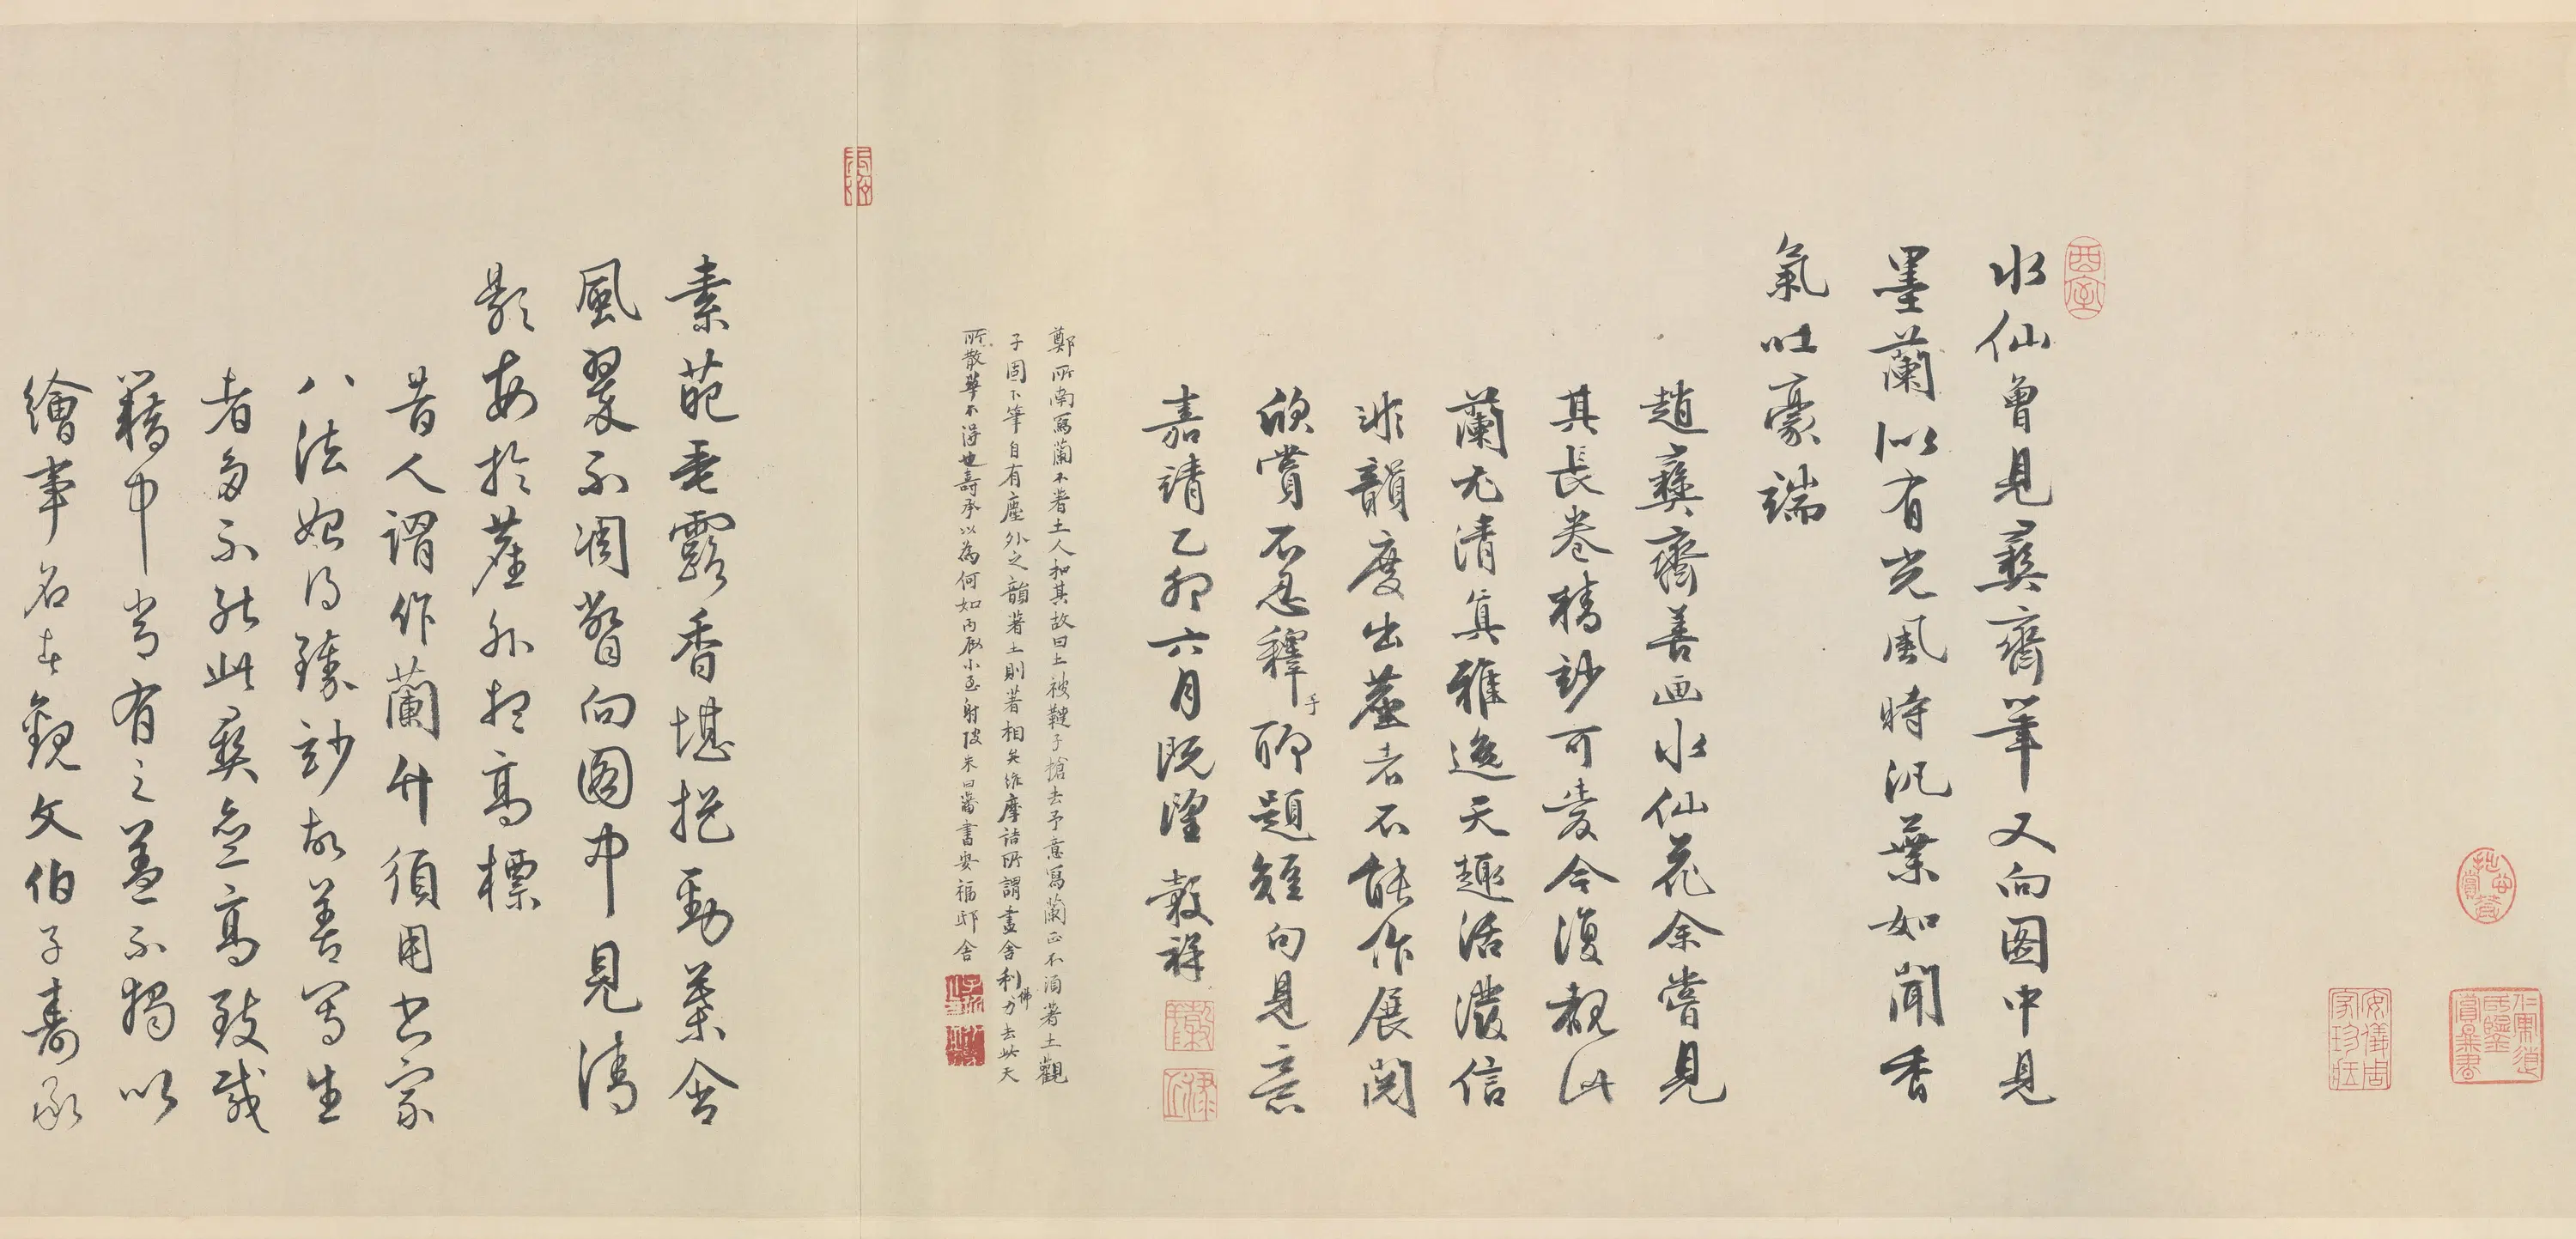 水仙曾見彝齋筆又向圖中見
墨蘭似有光風時汎葉如聞香
氣吐豪端
趙彝齋善画水仙花余嘗見
其長卷精妙可愛今復觀此
蘭尤清真雅逸天趣活濃信
非韻度出塵者不能作展閱
欣賞不忍釋手聊題短句見意
嘉靖乙卯六月既望 穀祥
鄭所南寫蘭不著土人和其故曰土被韃子搶去予意寫蘭正不須著土觀
子固下筆自有塵外之韻著土則著相矣維摩詰所謂畫舍利佛力去此天
所散華不得也壽承以為何如丙辰小至射陂朱曰藩書安福邸舍
素葩垂露香堪挹勁葉含
風翠不凋暫向圖中見清
影每於塵外想高標
昔人謂作蘭竹須用書家
八法始得臻妙故善寫生
者多不能此彝齋高致載
籍中嘗有之蓋不獨以
繪事名走觀文伯子壽承
酉室
安儀周家珍藏